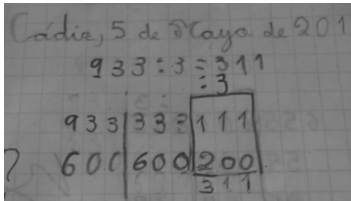 Cádiz, 5 de Mayo de 201
933:3=311
:3
933 333 111
? 600 600 200
311